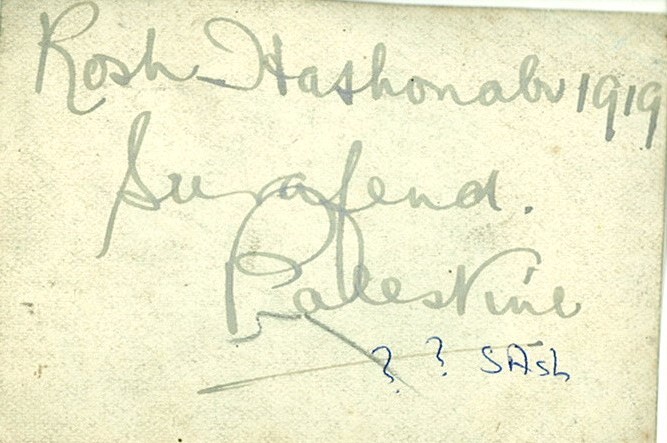 Rosh-Hashonah 1919
Surafend.
Palestine
? ? SASh